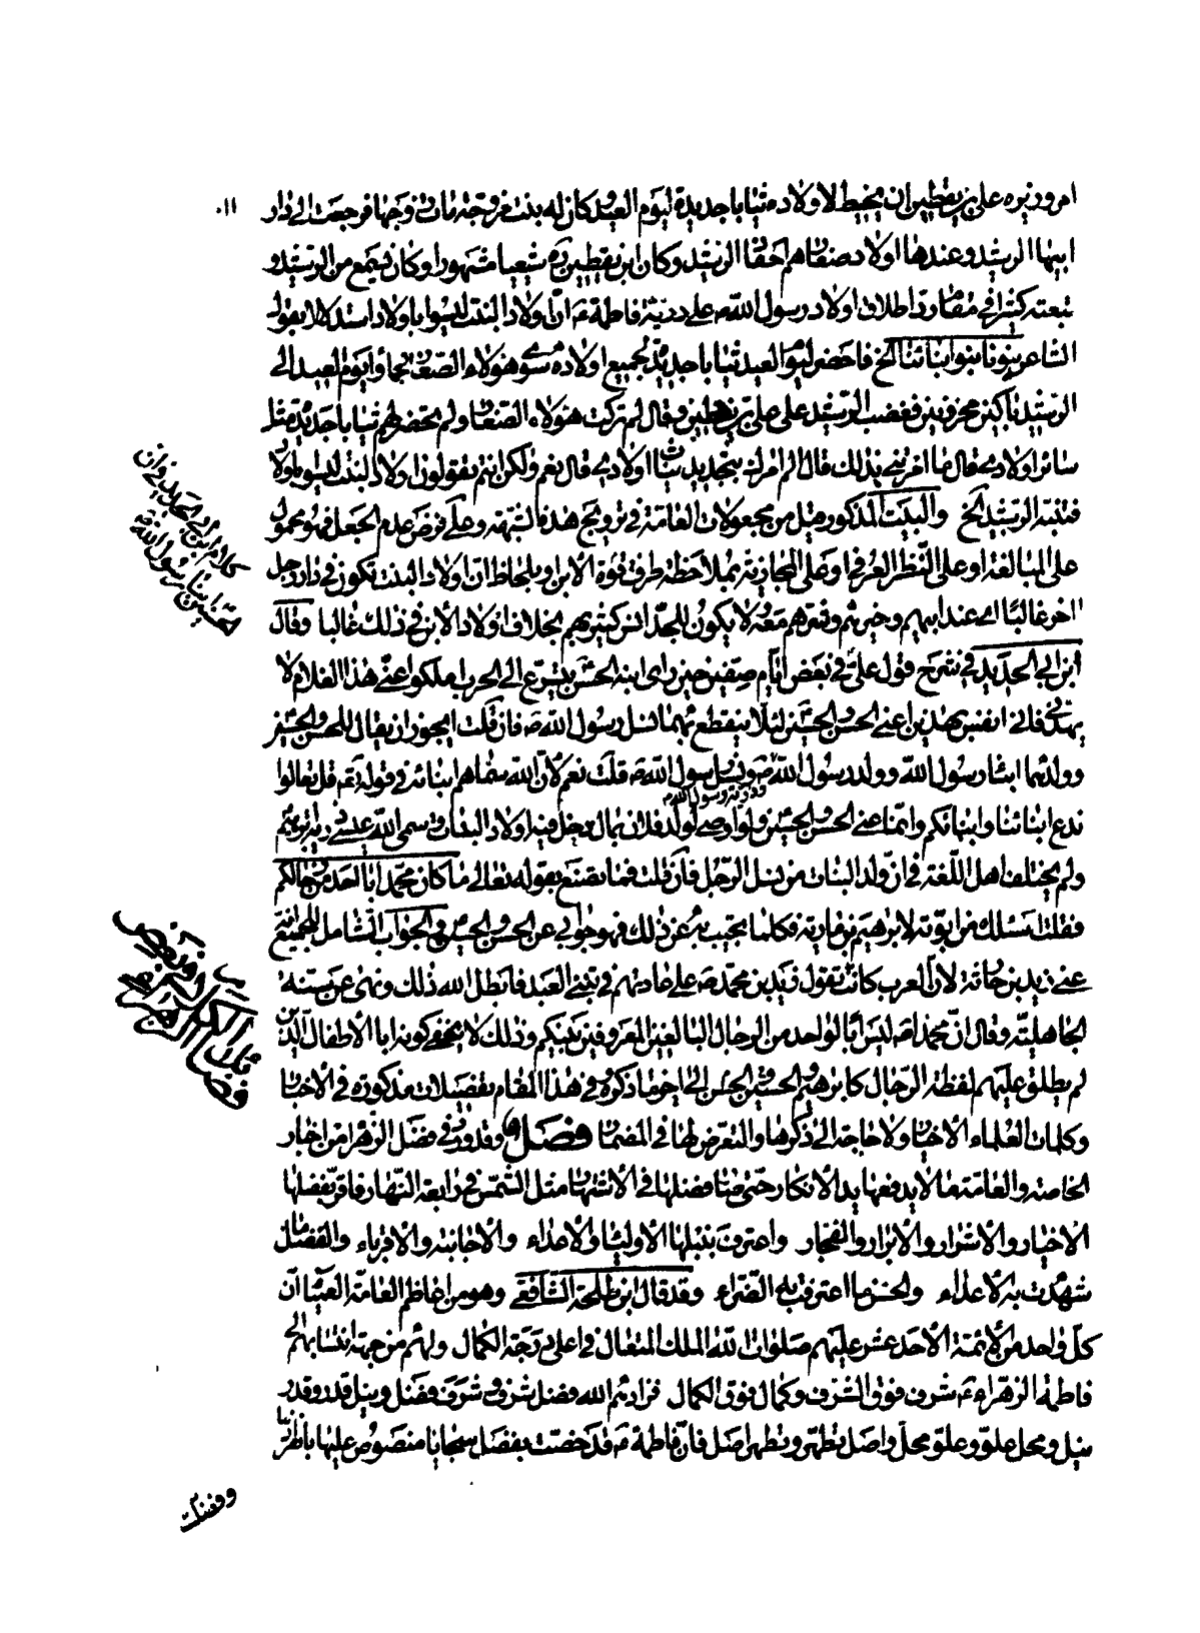 امر وزيره على بن يقطين ان يخيط لاولاده ثيابا جديدة ليوم العيد وكان له بنت مزوجة مات زوجها فرجعت الى دار
١١٠
ابيها الرشيد وعندها اولاد صغار هم احفاد الرشيد وكان ابن يقطين ره شيعيا مشهورا وكان يسمع من الرشيد و
تبعته كثيرا في مقام رد اطلاق اولاد رسول الله ص على ذرية فاطمة ع ان اولاد البنت ليسوا باولاد استدلالا بقول
الشاعر بنونا بنوا ابنائنا الخ فاحضر ليوم العيد ثيابا جديدة لجميع اولاده سوى هؤلاء الصغار فجاؤا يوم العيد الى
الرشيد باكين محزونين فغضب الرشيد على على بن يقطين وقال لم تركت هؤلاء الصغار ولم تحضر لهم ثيابا جديدة مثل
سائر اولادى قال ما امرتنى بذلك قال الم امرك بتجديد ثياب اولادى قال نعم ولكن انتم تقولون اولاد البنت ليسوا باولاد
فتنبه الرشيد الخ والبيت المذكور مثل من مجعولات العامة في ترويج هذه الشبهة وعلى فرض عدم الجعل فهو محمول
على المبالغة او على النظر العرفى او على المجازية بملاحظة طرف قوة الابن او بلحاظ ان اولاد البنت تكون في دار رجل
اخر غالبا اى عند ابيهم وخيرهم ونفعهم معه لا يكون للجد انس كثير بهم بخلاف اولاد الابن في ذلك غالبا وقال
ابن ابي الحديد في شرح قول على ع في بعض ايام صفين حين راى ابنه الحسن يتسرع الى الحرب املكوا عنى هذا الغلام لا
يهدنى فانى انفس بهذين اعنى الحسن والحسين لئلا ينقطع بهما نسل رسول الله ص فان قلت ايجوز ان يقال للحسن والحسين
وولدهما ابناء رسول الله وولد رسول الله ص ونسل رسول الله ص قلت نعم لان الله سماهم ابنائه في قوله تع قل تعالوا
وذرية رسول الله
ندع ابنائنا وابنائكم وانما عنى الحسن والحسين ولو اوصى لولد فلان بمال دخل فيه اولاد البنات وسمى الله عيسى ذرية ابرهيم
ولم يختلف اهل اللغة في ان ولد البنات من نسل الرجل فان قلت فما تصنع بقوله تعالى ما كان محمد ابا احد من رجالكم
فقلت نسئلك من ابوته لابرهيم بن مارية فكلما تجيب به عن ذلك فهو جوابي عن الحسن والحسين ع والجواب الشامل للجميع انه
عنى زيد بن حارثة لان العرب كانت تقول زيد بن محمد ص على عادتهم في تبنى العبيد فابطل الله ذلك ونهى عن سنة
الجاهلية وقال ان محمدا ص ليس ابا لواحد من الرجال البالغين المعروفين بينكم وذلك لا ينفى كونه ابا الاطفال الذين
لم يطلق عليهم لفظة الرجال كابرهيم والحسن والحسين الى اخر ما ذكره وفى هذا المقام تفصيلات مذكورة في الاخبار
وكلمات العلماء الاخيار ولا حاجة الى ذكرها والتعرض لها في المضمار فصل وقد ورد في فضل الزهراء من اخبار
الخاصة والعامة ما لا يدفعها يد الانكار حتى صار فضلها في الاشتهار مثل الشمس في رابعة النهار فاقر بفضلها
الاخيار والاشرار والابرار والفجار واعترفت بنبلها الاولياء والاعداء والاجانبة والاقرباء والفضل ما
شهدت به الاعداء والحسن ما اعترفت به الضراء وقد قال ابن طلحة الشافعى وهو من اعاظم العامة العمياء ان
كل واحد من الائمة الاحد عشر عليهم صلوات الله الملك المتعال في اعلى درجة الكمال ولهم من جهة انتسابهم الى
فاطمة الزهراء ع شرف فوق الشرف وكمال فوق الكمال فزادهم الله فضل شرف وشرف فضل ونيل قدر وقدر
نيل ومحل علو وعلو محل واصل تطهر وتطهر اصل فان فاطمة ع قد خصت بفضل سجايا منصوص عليها بانفرادها
وفضلت
كلام ابن ابي الحديد في ان
حسنين ابنا رسول الله ص
في
فضائل الزهراء